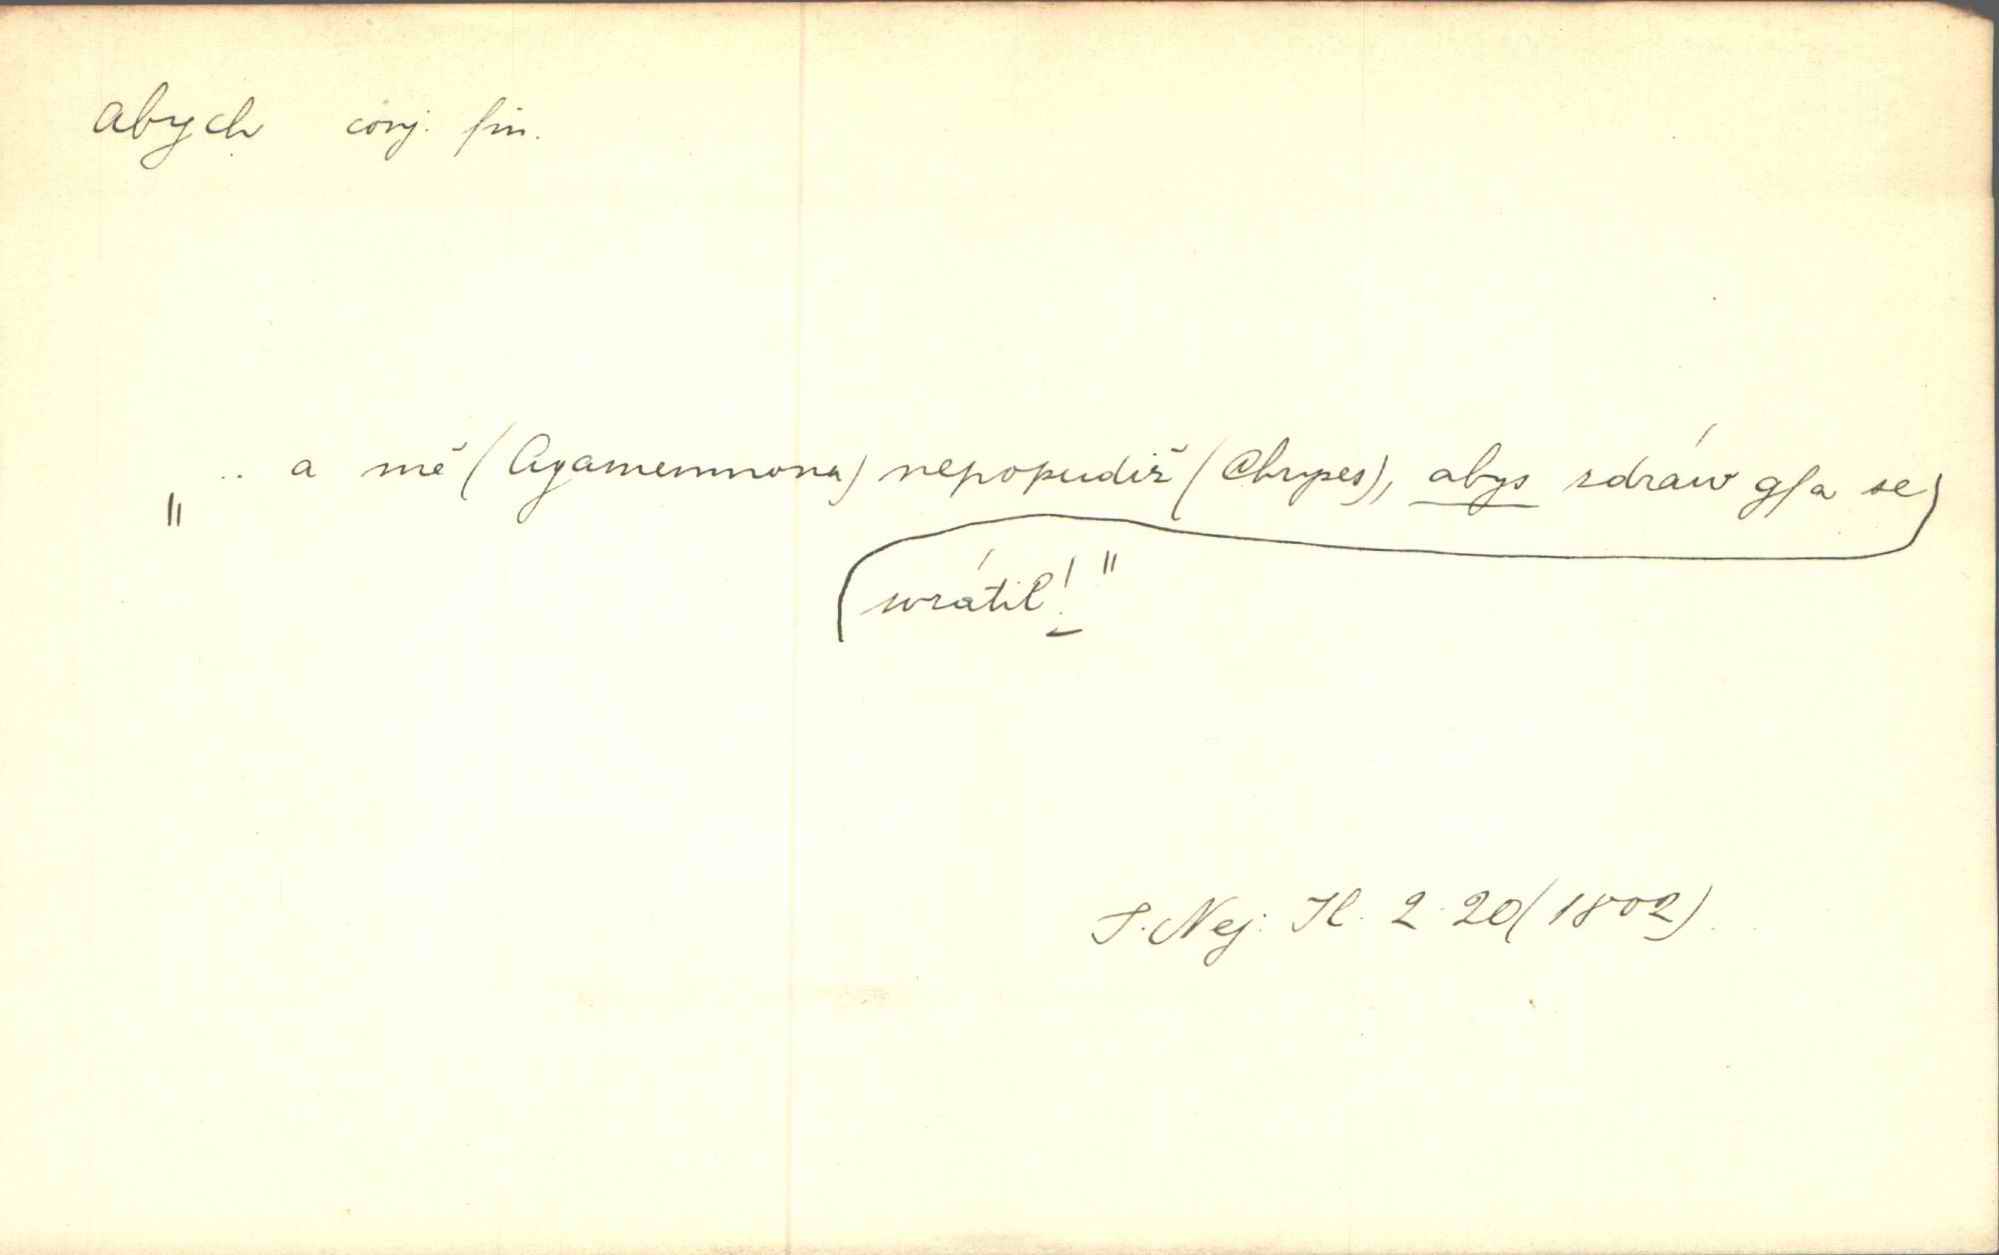 abych conj. fin.
„ .. a mě (Agamemnona) nepopudiž (Chryses), abys zdráw gſa se
wrátil!"
S. Nej. Il. 2. 20 (1802)